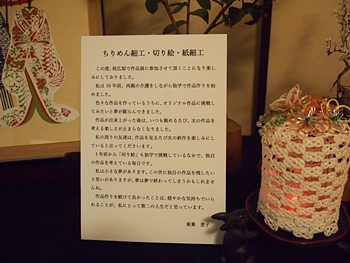 ちりめん細工・切り絵・紙細工
この度、桜広場で作品展に参加させて頂くことになり楽し
みにしておりました。
私は10年前、両親の介護をしながら独学で作品作りを始
めました。
色々な作品を作っているうちに、オリジナル作品に挑戦し
てみたいと夢が膨らんできました。
作品が出来上がった後は、いつも眺めるたび、次の作品を
考える楽しさが止まらなくなりました。
私の周りの友達は、作品を見るたび次の新作を楽しみにし
ていると言ってくださいます。
1年前から「切り絵」も独学で挑戦しているなかで、独自
の作品を考えている毎日です。
私は小さな夢があります。この世に独自の作品を残したい
と思いがありますが、夢は夢で終わってしまうかもしれませ
んね。
作品作りを続けて良かったことは、穏やかな気持ちでいら
れることが、私にとって第二の人生だと思っています。